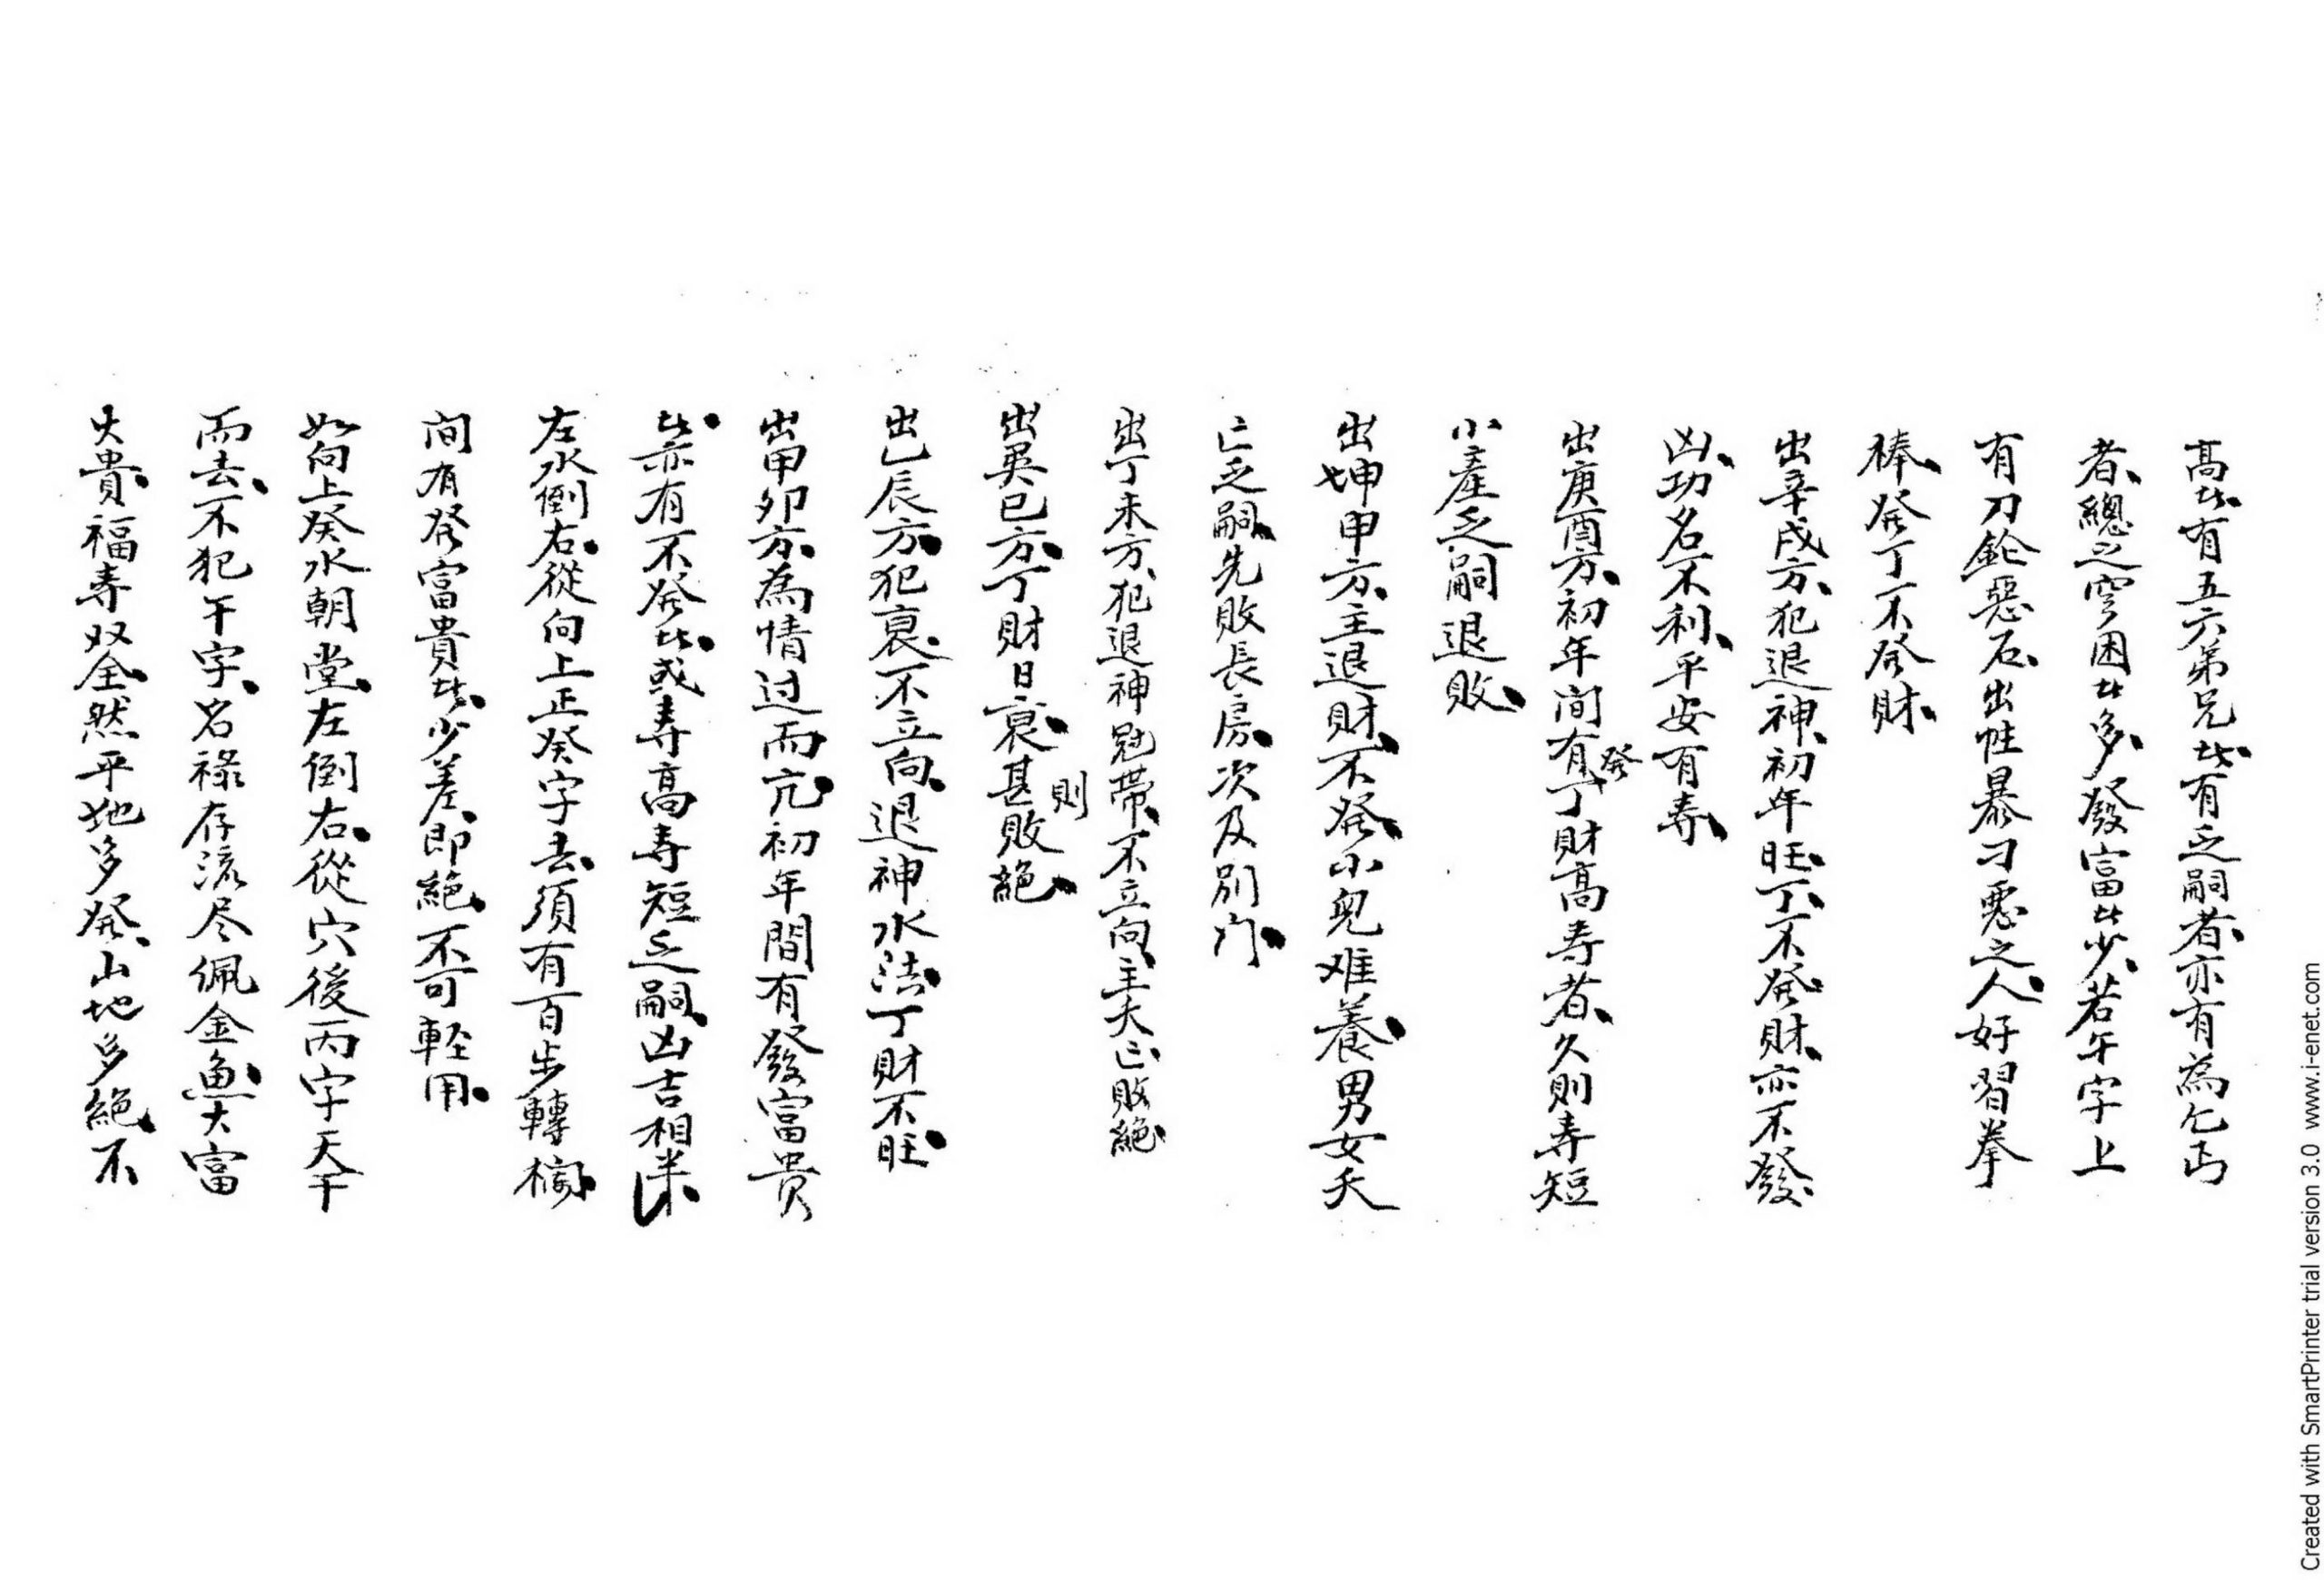 高者有五六弟兄者有乏嗣者亦有為乞丐
者總之窮困者多發富者少若午字上
有刀鎗惡石出性暴刁悪之人好習拳
棒発丁不発財
出辛戌方犯退神初年旺丁不発財亦不發
凶功名不利平安有寿
出庚酉方初年间有発丁財高寿者久則寿短
小產乏嗣退敗
出坤申方主退財不発小兒难養男女夭
亡乏嗣先敗長房次及別门
出丁未方犯退神冠帶不立向主大亡敗絕
出巽巳方丁財日衰甚則敗絕
出乙辰方犯衰不立向退神水法丁財不旺
出甲卯方為情过而亢初年間有發富贵
者亦有不発者或寿高寿短乏嗣凶吉相
左水倒右從向上正癸字去須有百步轉欄
间有発富貴者少差即絕不可軽用
如向上癸水朝堂左倒右從穴後丙字天干
而去不犯午字名祿存流尽佩金魚大富
大貴福寿双全然平地多発山地多絕不
Created with SmartPrinter trial version 3.0 www.i-enet.com